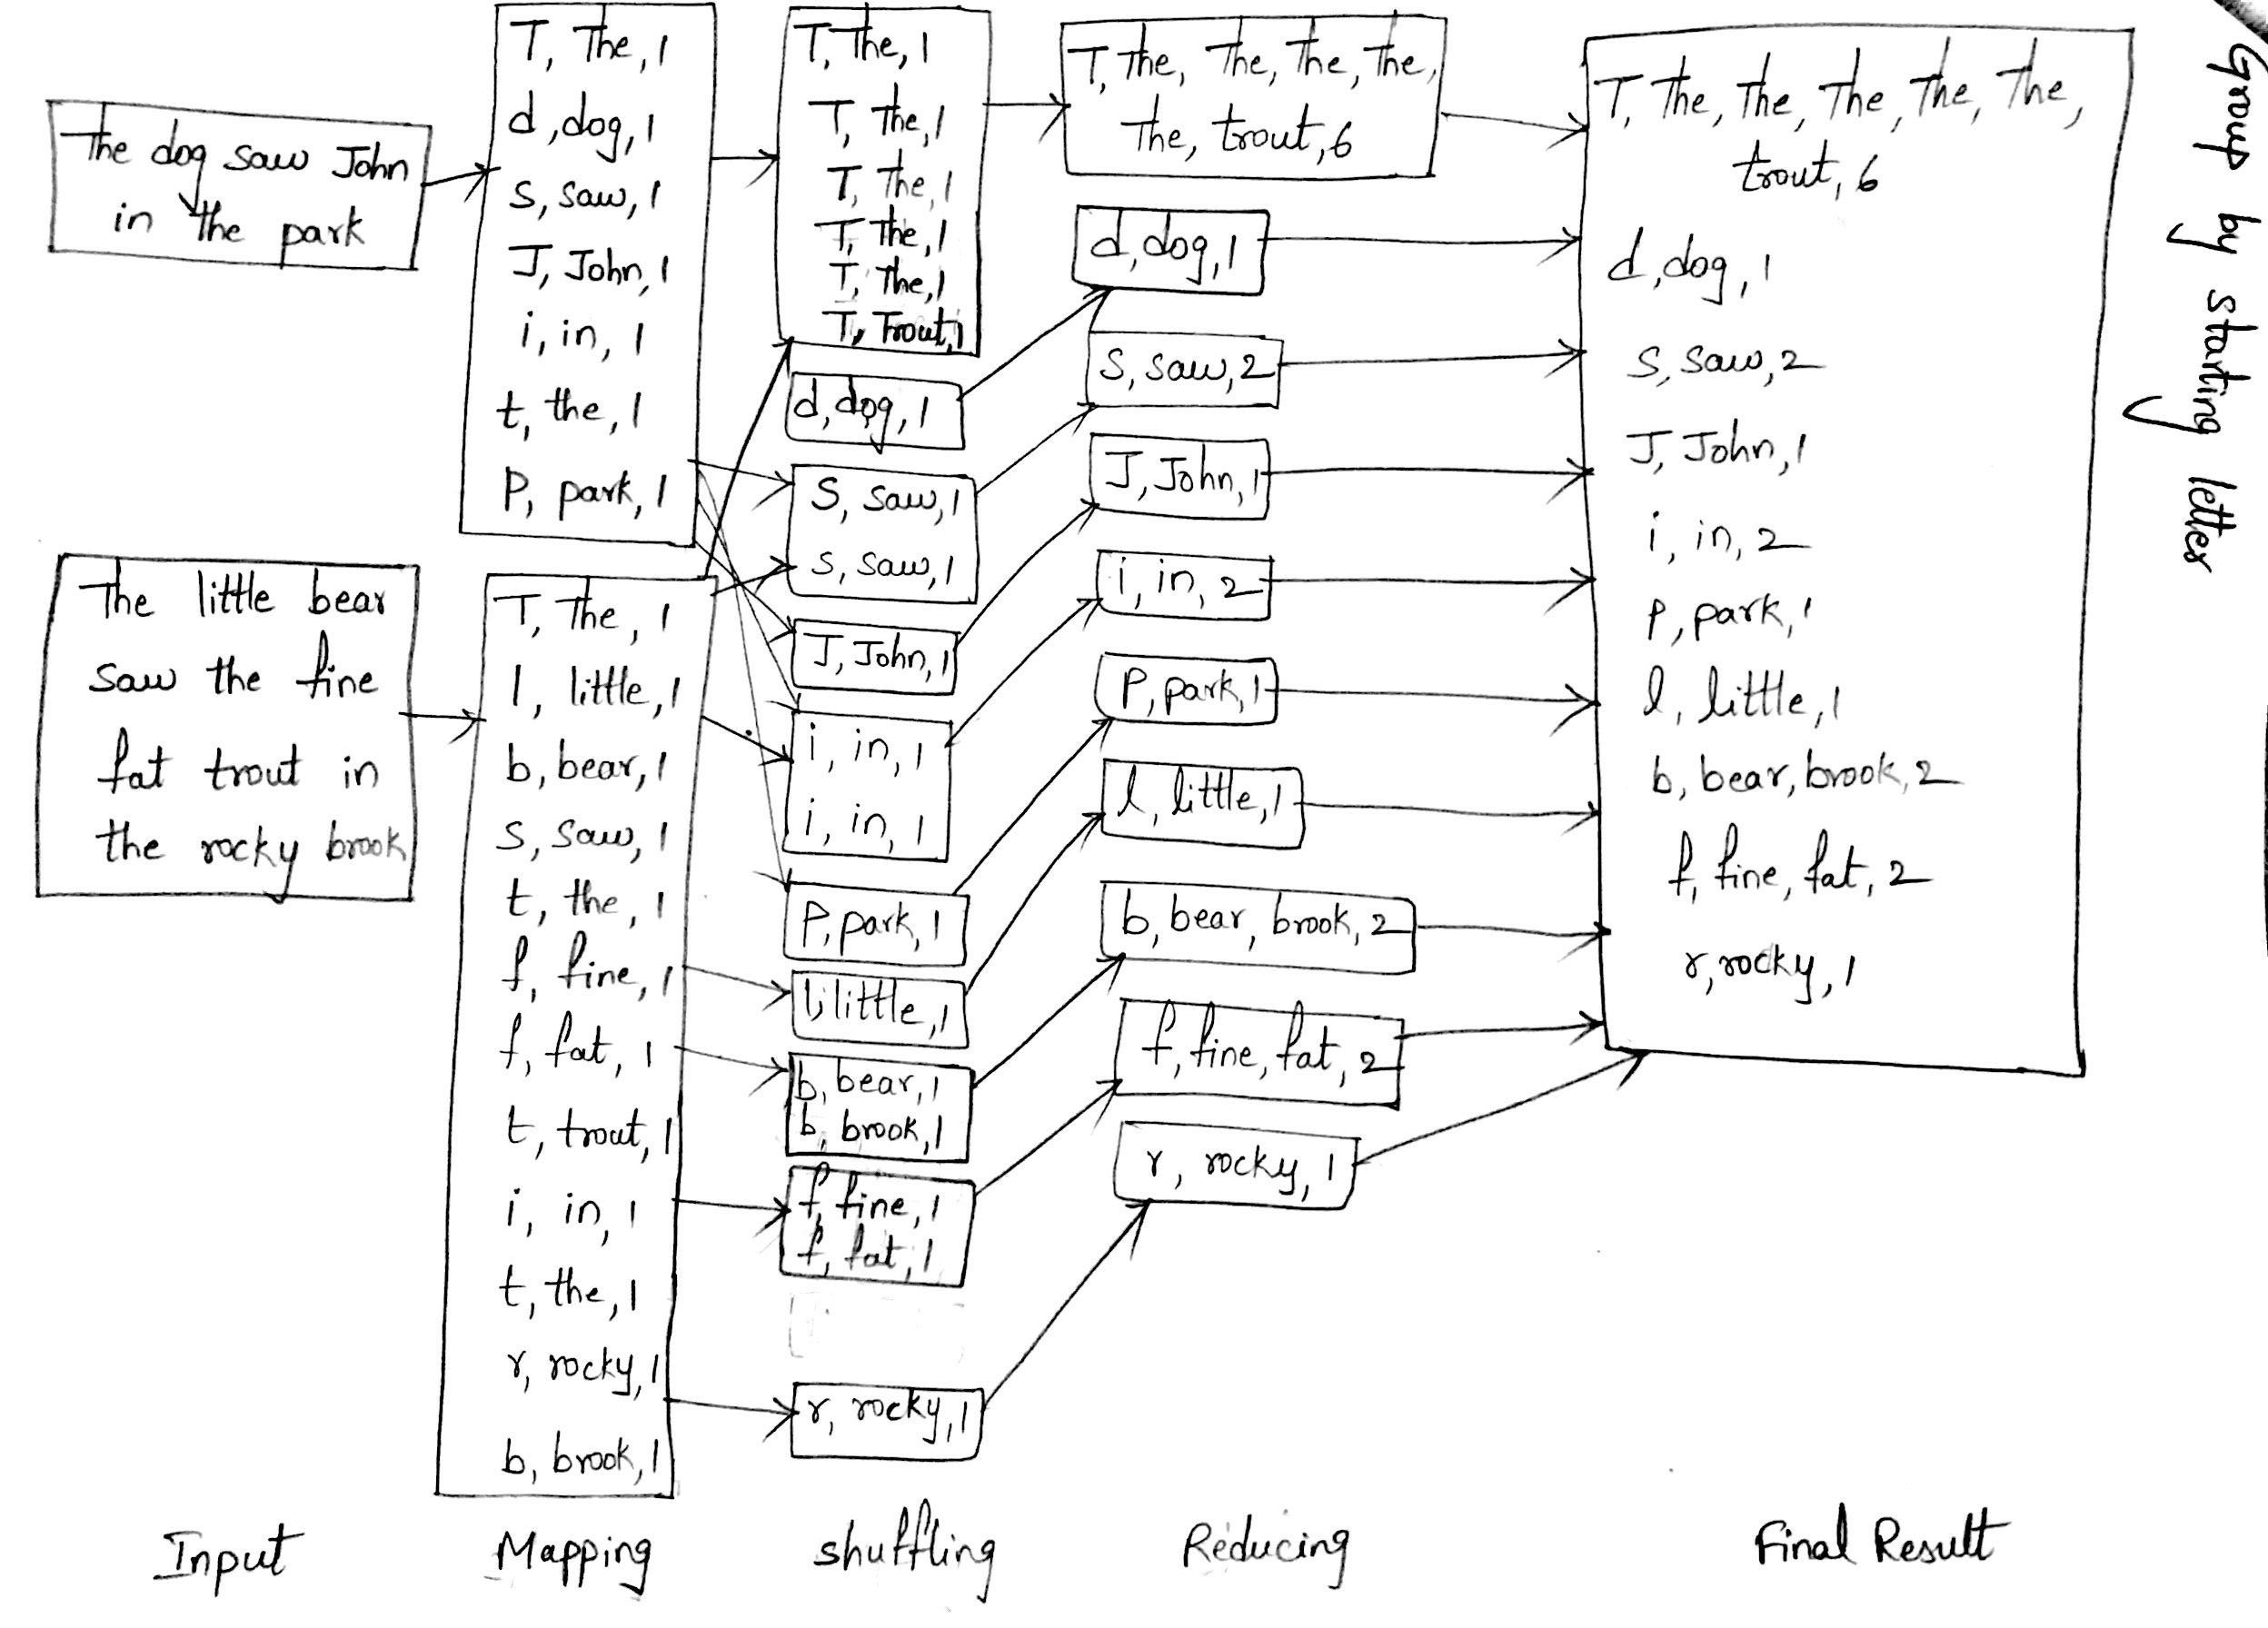 The dog saw John
in the park
The little bear
saw the fine
fat trout in
the rocky brook
Input
T, The, 1
d, dog, 1
S, saw, 1
J, John, 1
i, in, 1
t, the, 1
P, park, 1
T, The, 1
l, little, 1
b, bear, 1
s, saw, 1
t, the, 1
f, fine, 1
f, fat, 1
t, trout, 1
i, in, 1
t, the, 1
r, rocky, 1
b, brook, 1
Mapping
T, The, 1
T, The, 1
T, The, 1
T, The, 1
T, The, 1
T, Trout, 1
d, dog, 1
S, saw, 1
S, saw, 1
J, John, 1
i, in, 1
i, in, 1
P, park, 1
l, little, 1
b, bear, 1
b, brook, 1
f, fine, 1
f, fat, 1
r, rocky, 1
shuffling
T, The, The, The, The,
The, trout, 6
d, dog, 1
S, saw, 2
J, John, 1
i, in, 2
P, park, 1
l, little, 1
b, bear, brook, 2
f, fine, fat, 2
r, rocky, 1
Reducing
T, The, The, The, The, The,
trout, 6
d, dog, 1
S, saw, 2
J, John, 1
i, in, 2
P, park, 1
l, little, 1
b, bear, brook, 2
f, fine, fat, 2
r, rocky, 1
Final Result
Group by starting letter